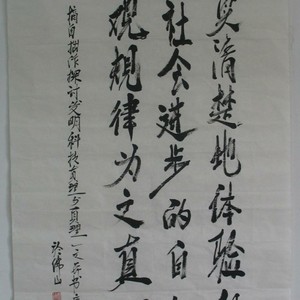 更清楚地体验
社会进步的自
观规律为文真
摘自拙作探讨发明科技真理与真理一文
于佛山